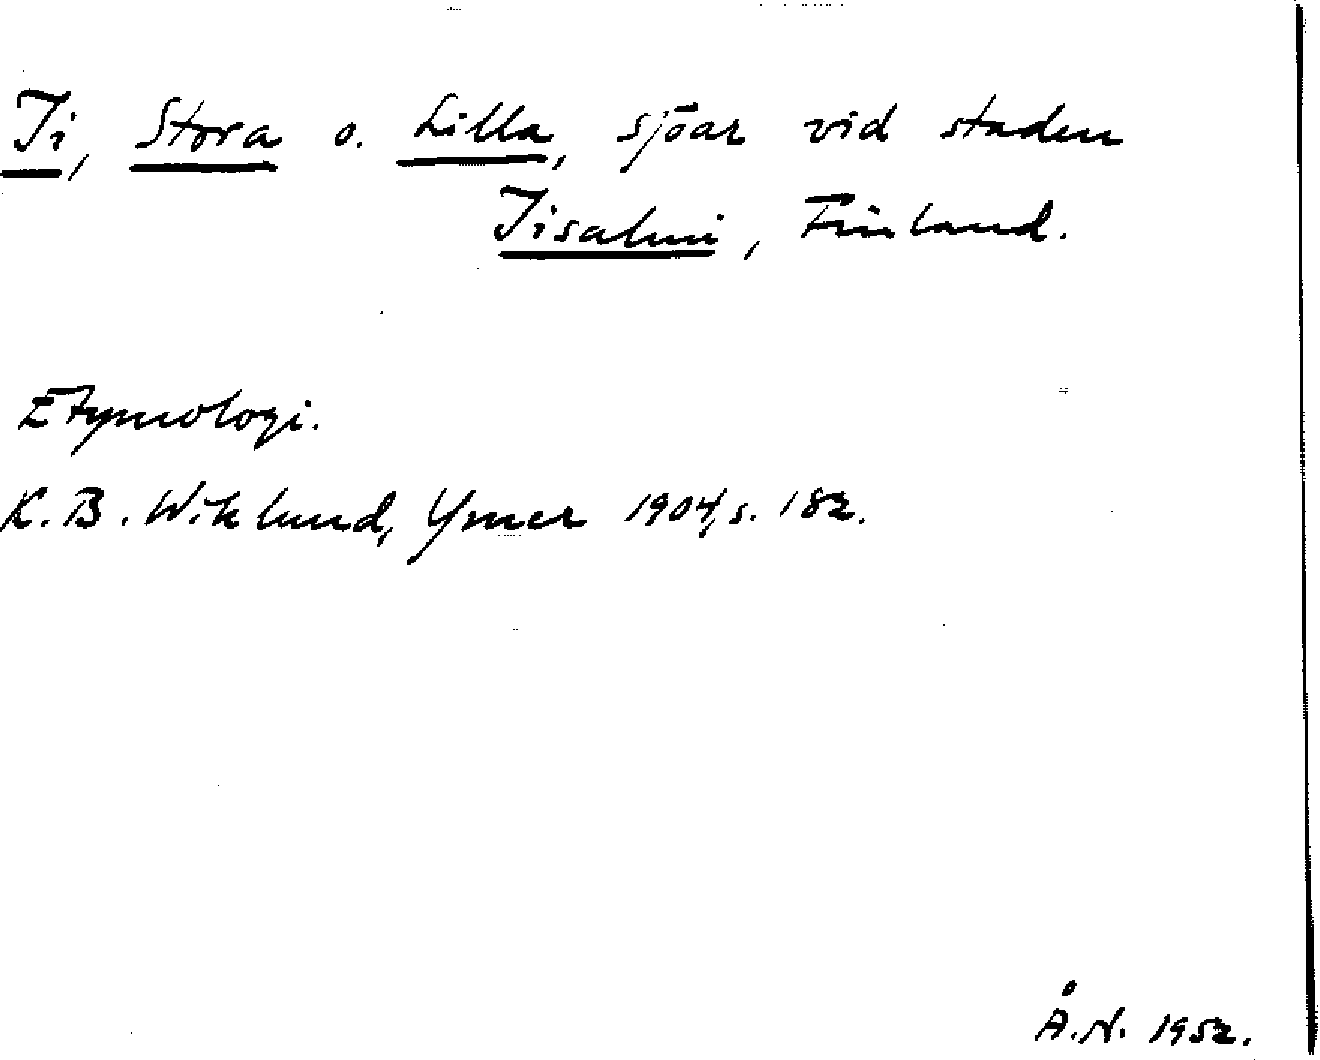 Ii, Stora o. Lilla, sjöar vid staden
Iisalmi, Finland.
Etymologi.
K. B. Wiklund, Ymer 1904, s. 182.
Å. N. 1952.